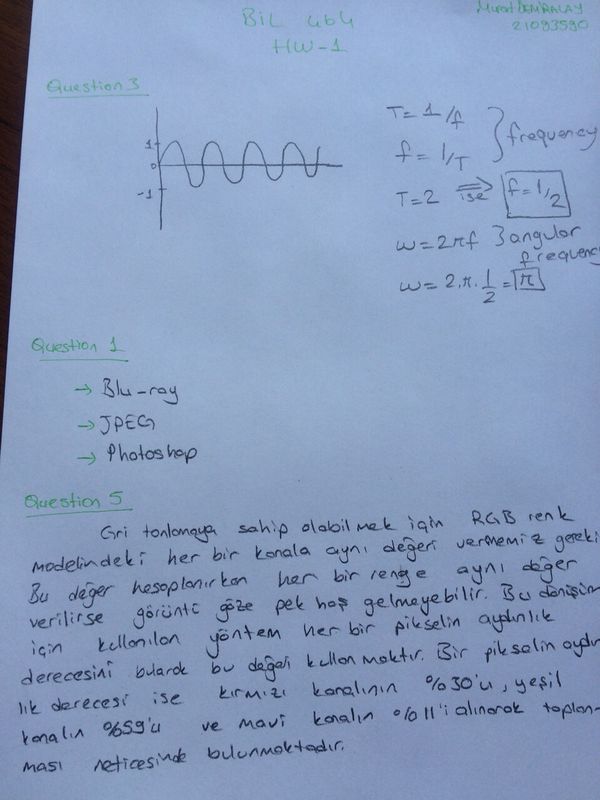 BİL 464
HW-1
Murat DEMİRALAY
21093590
Question 3
1
0
-1
T = 1/f
f = 1/T
} frequency
T = 2 ⇒ ise f = 1/2
w = 2πf } angular frequency
w = 2.π.1/2 = π
Question 1
→ Blu-ray
→ JPEG
→ Photoshop
Question 5
Gri tonlamaya sahip olabilmek için RGB renk
modelindeki her bir kanala aynı değeri vermemiz gereki
Bu değer hesaplanırken her bir renge aynı değer
verilirse görüntü göze pek hoş gelmeyebilir. Bu dönüşüm
için kullanılan yöntem her bir pikselin aydınlık
derecesini bularak bu değeri kullanmaktır. Bir pikselin aydın
lık derecesi ise kırmızı kanalının %30'u, yeşil
kanalın %59'u ve mavi kanalın %11'i alınarak toplan-
ması neticesinde bulunmaktadır.